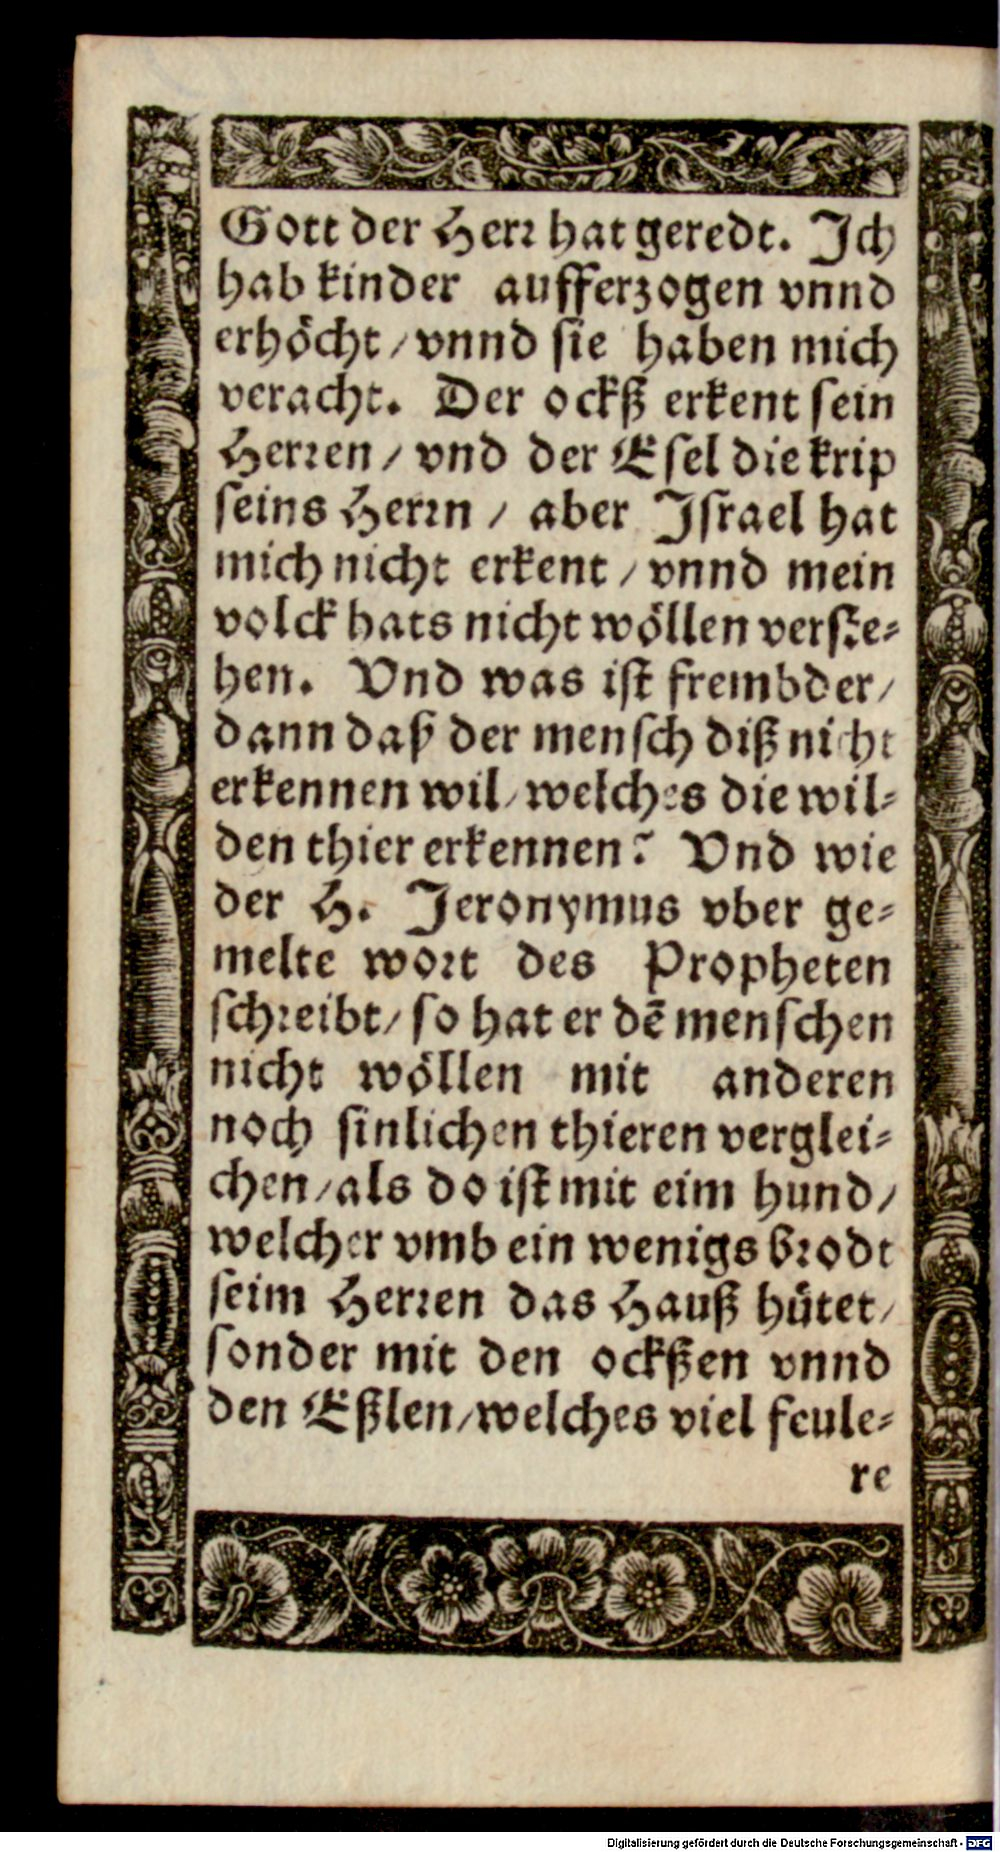 Gott der Herr hat geredt. Ich
hab kinder aufferzogen vnnd
erhöcht / vnnd sie haben mich
veracht. Der ockß erkent sein
Herren / vnd der Esel die krip
seins Herrn / aber Israel hat
mich nicht erkent / vnnd mein
volck hats nicht wöllen verste-
hen. Vnd was ist frembder /
dann daß der mensch diß nicht
erkennen wil / welches die wil-
den thier erkennen? Vnd wie
der H. Jeronymus vber ge-
melte wort des Propheten
schreibt / so hat er dē menschen
nicht wöllen mit anderen
noch sinlichen thieren verglei-
chen / als do ist mit eim hund /
welcher vmb ein wenigs brodt
seim Herren das Hauß hütet /
sonder mit den ockßen vnnd
den Eßlen / welches viel feule-
re
Digitalisierung gefördert durch die Deutsche Forschungsgemeinschaft - DFG